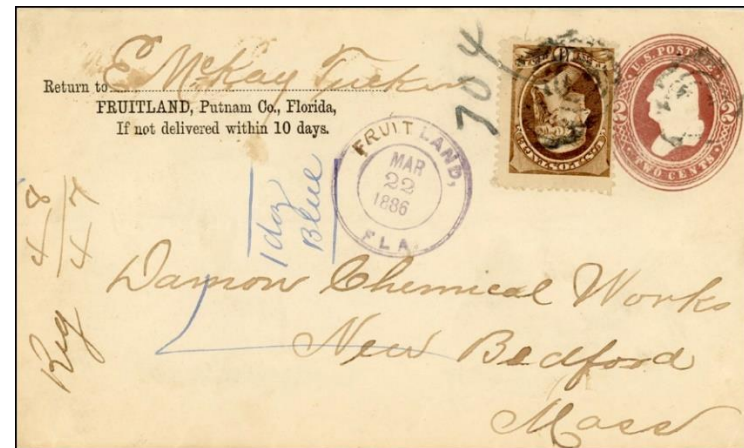 Return to E McKay Tucker
FRUITLAND, Putnam Co., Florida,
If not delivered within 10 days.
704
U.S. POSTAGE
2 2
TWO CENTS
FRUITLAND,
MAR
22
1886
FLA.
1 doz
Blue
Reg 48
47
Damon Chemical Works
New Bedford
Mass